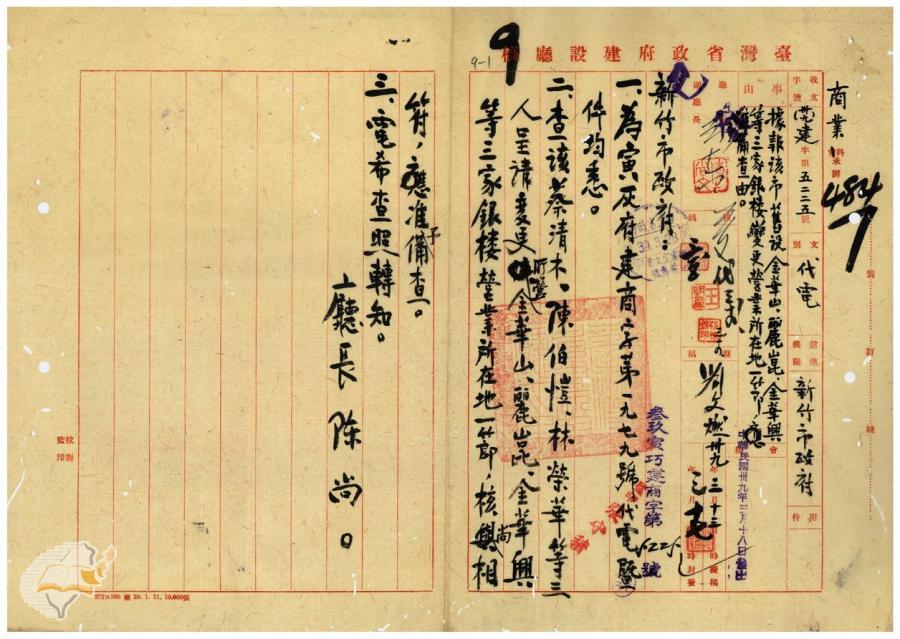 臺灣省政府建設廳稿
9
9-1
商業
科承辦
484
收文
字號
黨建
字第五二二五號
文別
代電
送達機關
新竹市政府
附件
事由
據報該市舊設金華山、麗崑、金華興
等三家銀樓變更營業所在地一節,應
准備查由。
廳長
副廳長
核稿
擬稿
會
劉文燃
卅九年三月十三
中華民國卅九年三月十八日發出
時擬稿
時封發
叁玖寅巧建商字第5225號
新竹市政府:
一、為寅灰府建商字第一九七九號代電暨
件均悉。
二、查該蔡清木、陳伯愷、林榮華等三
人呈請變更所營金華山、麗崑、金華興
等三家銀樓營業所在地一節,核尚相
符,應准予備查。
三、電希查照轉知。
廳長陳尚。
裝訂線
校對
監印
272×385 廳 39.1.11, 10,000張